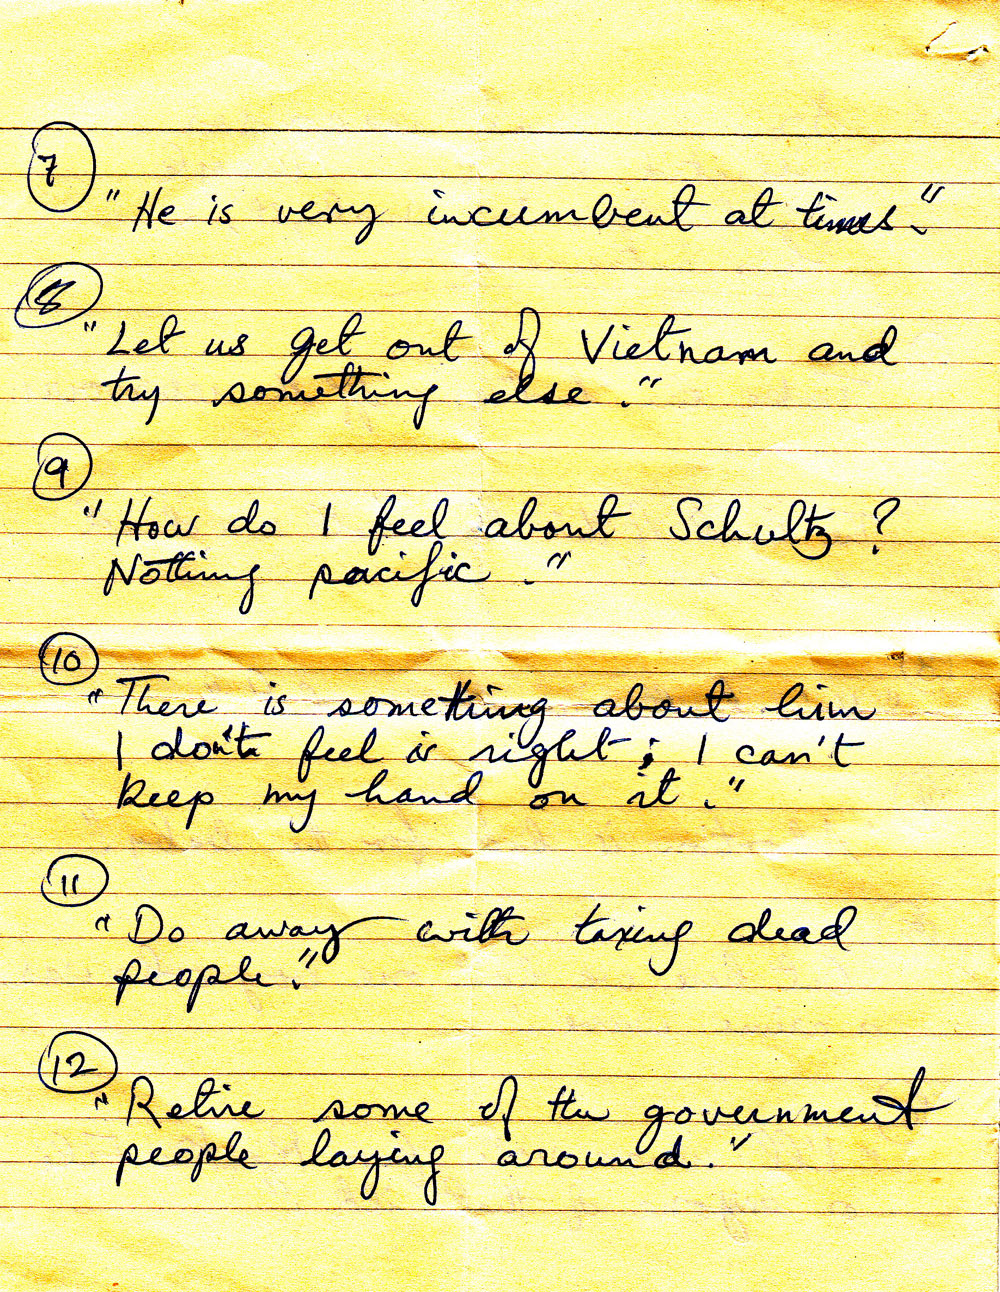 7
"He is very incumbent at times."
8
"Let us get out of Vietnam and
try something else."
9
"How do I feel about Schultz?
Nothing pacific."
10
"There is something about him
I don't feel is right; I can't
keep my hand on it."
11
"Do away with taxing dead
people."
12
"Retire some of the government
people laying around."